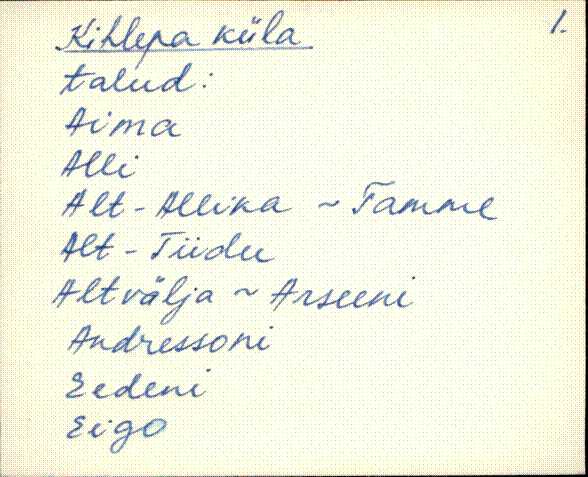 Kihlepa küla 1.
talud:
Aima
Alli
Alt-Allika ~ Tamme
Alt-Tiidu
Altvälja ~ Arseeni
Andressoni
Eedeni
Eigo